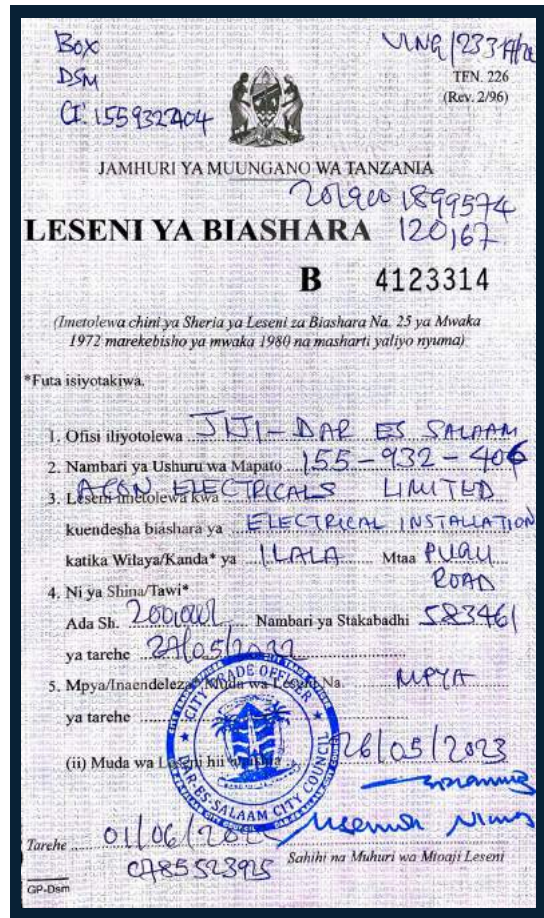 Box
DSM
TFN. 226
(Rev. 2/96)
JAMHURI YA MUUNGANO WA TANZANIA
LESENI YA BIASHARA
120,167
B 4123314
(Imetolewa chini ya Sheria ya Leseni za Biashara Na. 25 ya Mwaka
1972 marekebisho ya mwaka 1980 na masharti yaliyo nyuma)
*Futa isiyotakiwa.
1. Ofisi iliyotolewa JIJI - DAR ES SALAAM
2. Nambari ya Ushuru wa Mapato 155-932-406
3. Leseni imetolewa kwa ACON ELECTRICALS LIMITED
kuendesha biashara ya ELECTRICAL INSTALLATION
katika Wilaya/Kanda* ya ILALA Mtaa PUGU
ROAD
4. Ni ya Shina/Tawi*
Ada Sh. Nambari ya Stakabadhi 583461
ya tarehe 27/05/2022
5. Mpya/Inaendeleza* Muda wa Leseni Na. MPYA
ya tarehe
(ii) Muda wa Leseni hii 26/05/2023
CITY TRADE OFFICER
DAR-ES-SALAAM CITY COUNCIL
Tarehe 01/06/
0785523925
Sahihi na Muhuri wa Mtoaji Leseni
GP-Dsm